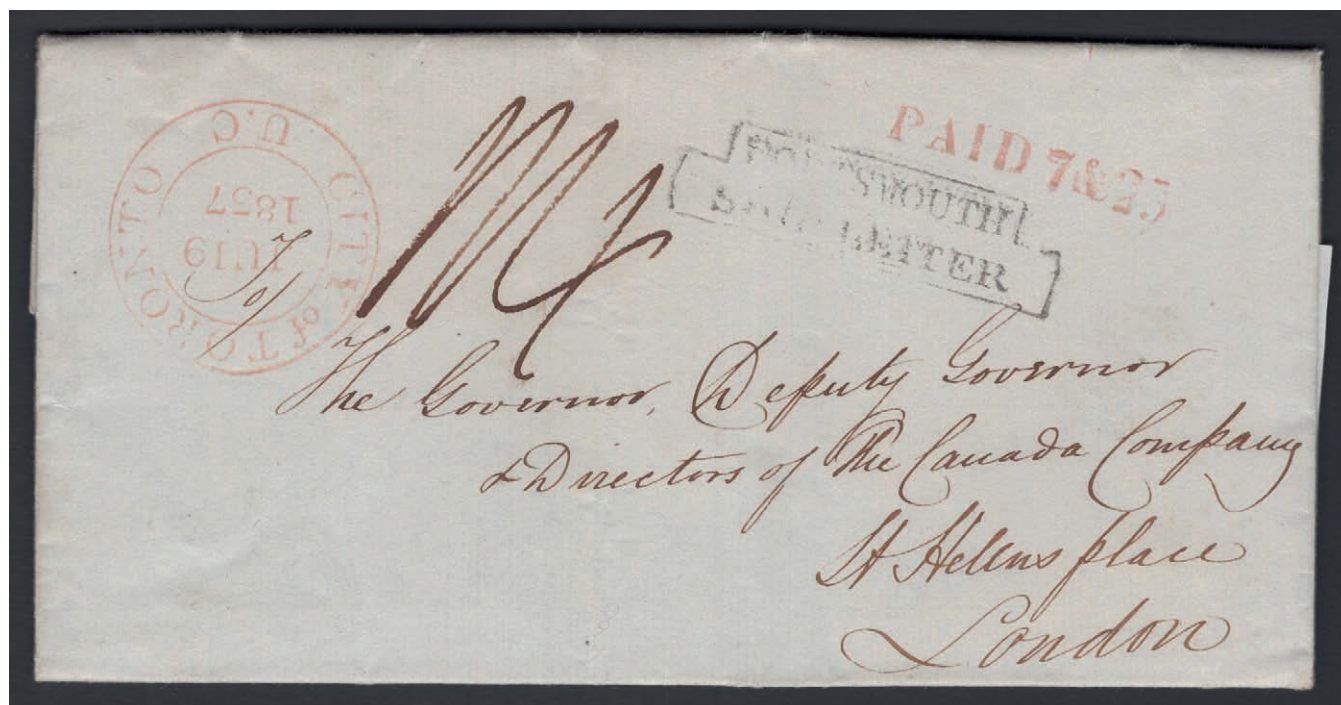 CITY of TORONTO U.C
JU 19
1837
PAID 7&25
PORTSMOUTH
SHIP LETTER
To/
The Governor, Deputy Governor
& Directors of The Canada Company
St Hellens place
London